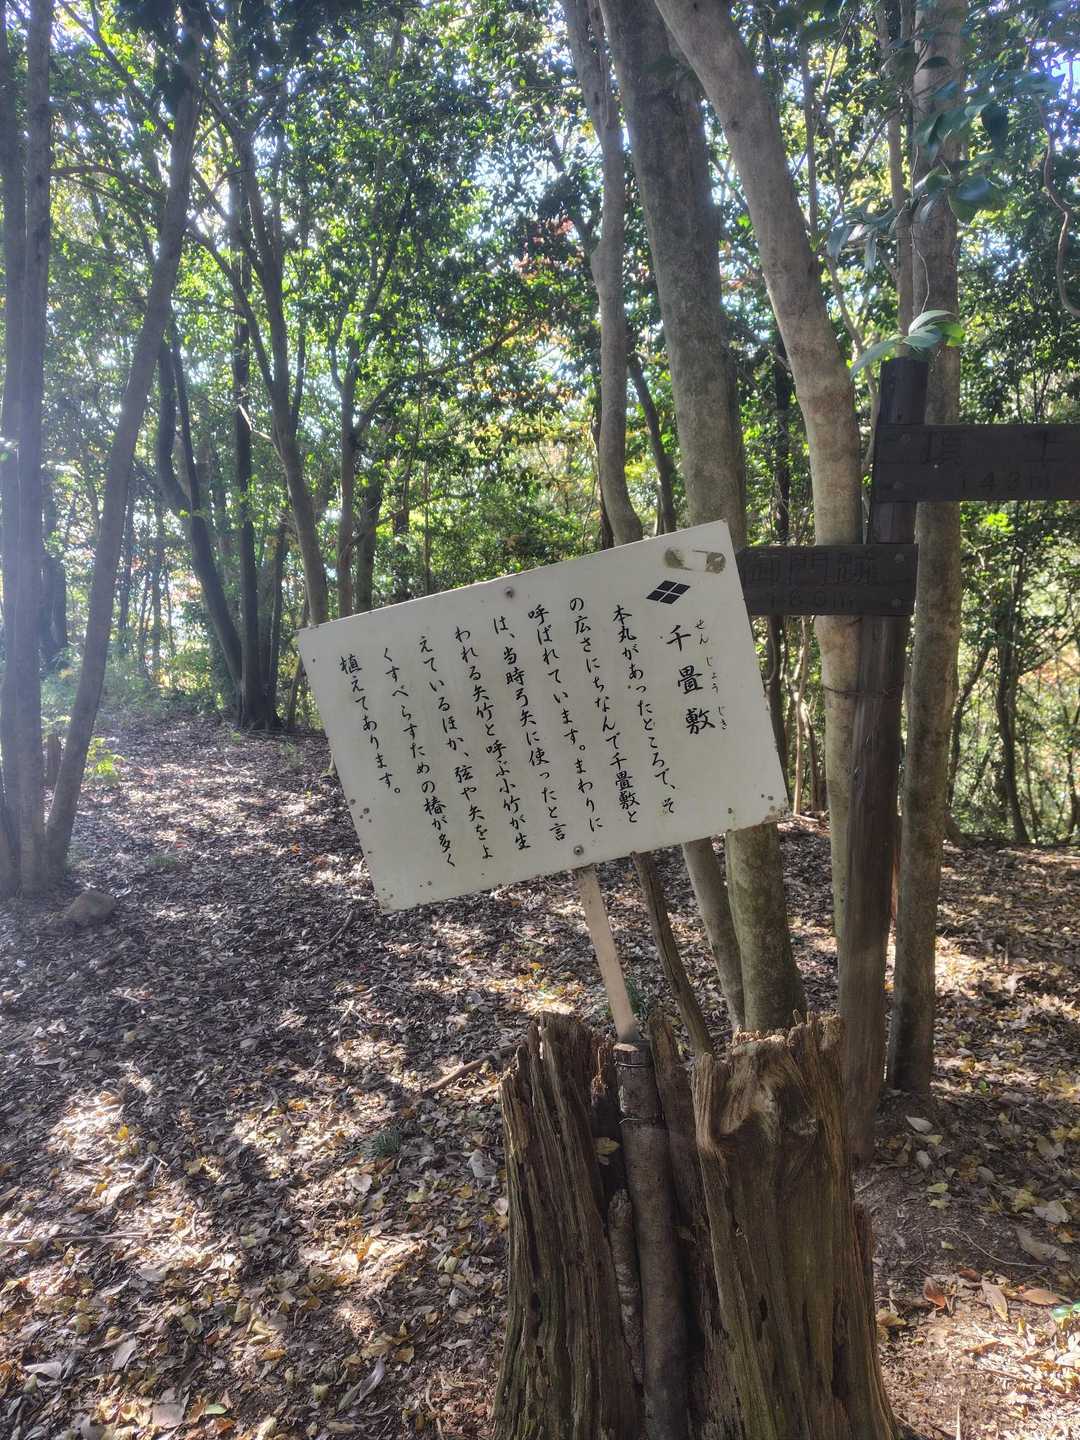 千畳敷
せんじょうじき
本丸があったところで、そ
の広さにちなんで千畳敷と
呼ばれています。まわりに
は、当時弓矢に使ったと言
われる矢竹と呼ぶ小竹が生
えているほか、弦や矢をよ
くすべらすための椿が多く
植えてあります。
頂上
143m
御門跡
180m